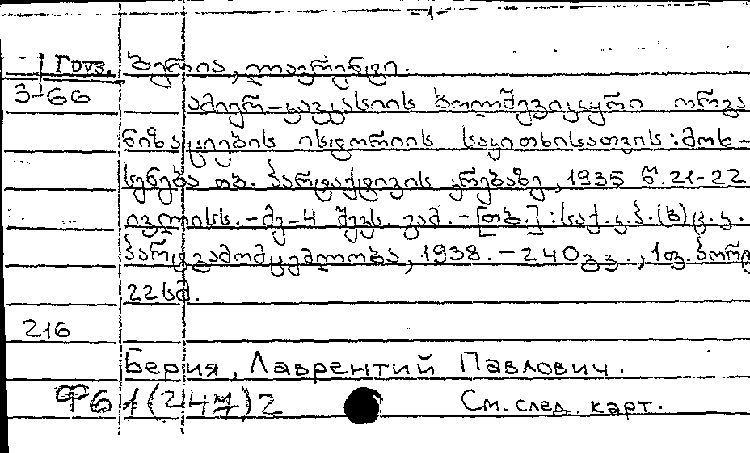 -1-
Гоуз. ბერია, ლავრენტი.
3-66 ამიერ-კავკასიის ბოლშევიკური ორგა
ნიზაციების ისტორიის საკითხისათვის: მოხ-
სენება თბ. პარტაქტივის კრებაზე, 1935 წ. 21-22
ივლისს. -მე-4 შევს. გამ. -[თბ.]: საქ. კ. პ. (ბ) ც. კ.
პარტგამომცემლობა, 1938. -240 გვ., 1 ფ. პორტ
22 სმ.
216
Берия, Лаврентий Павлович.
Ф6 1(247)2 См. след. карт.